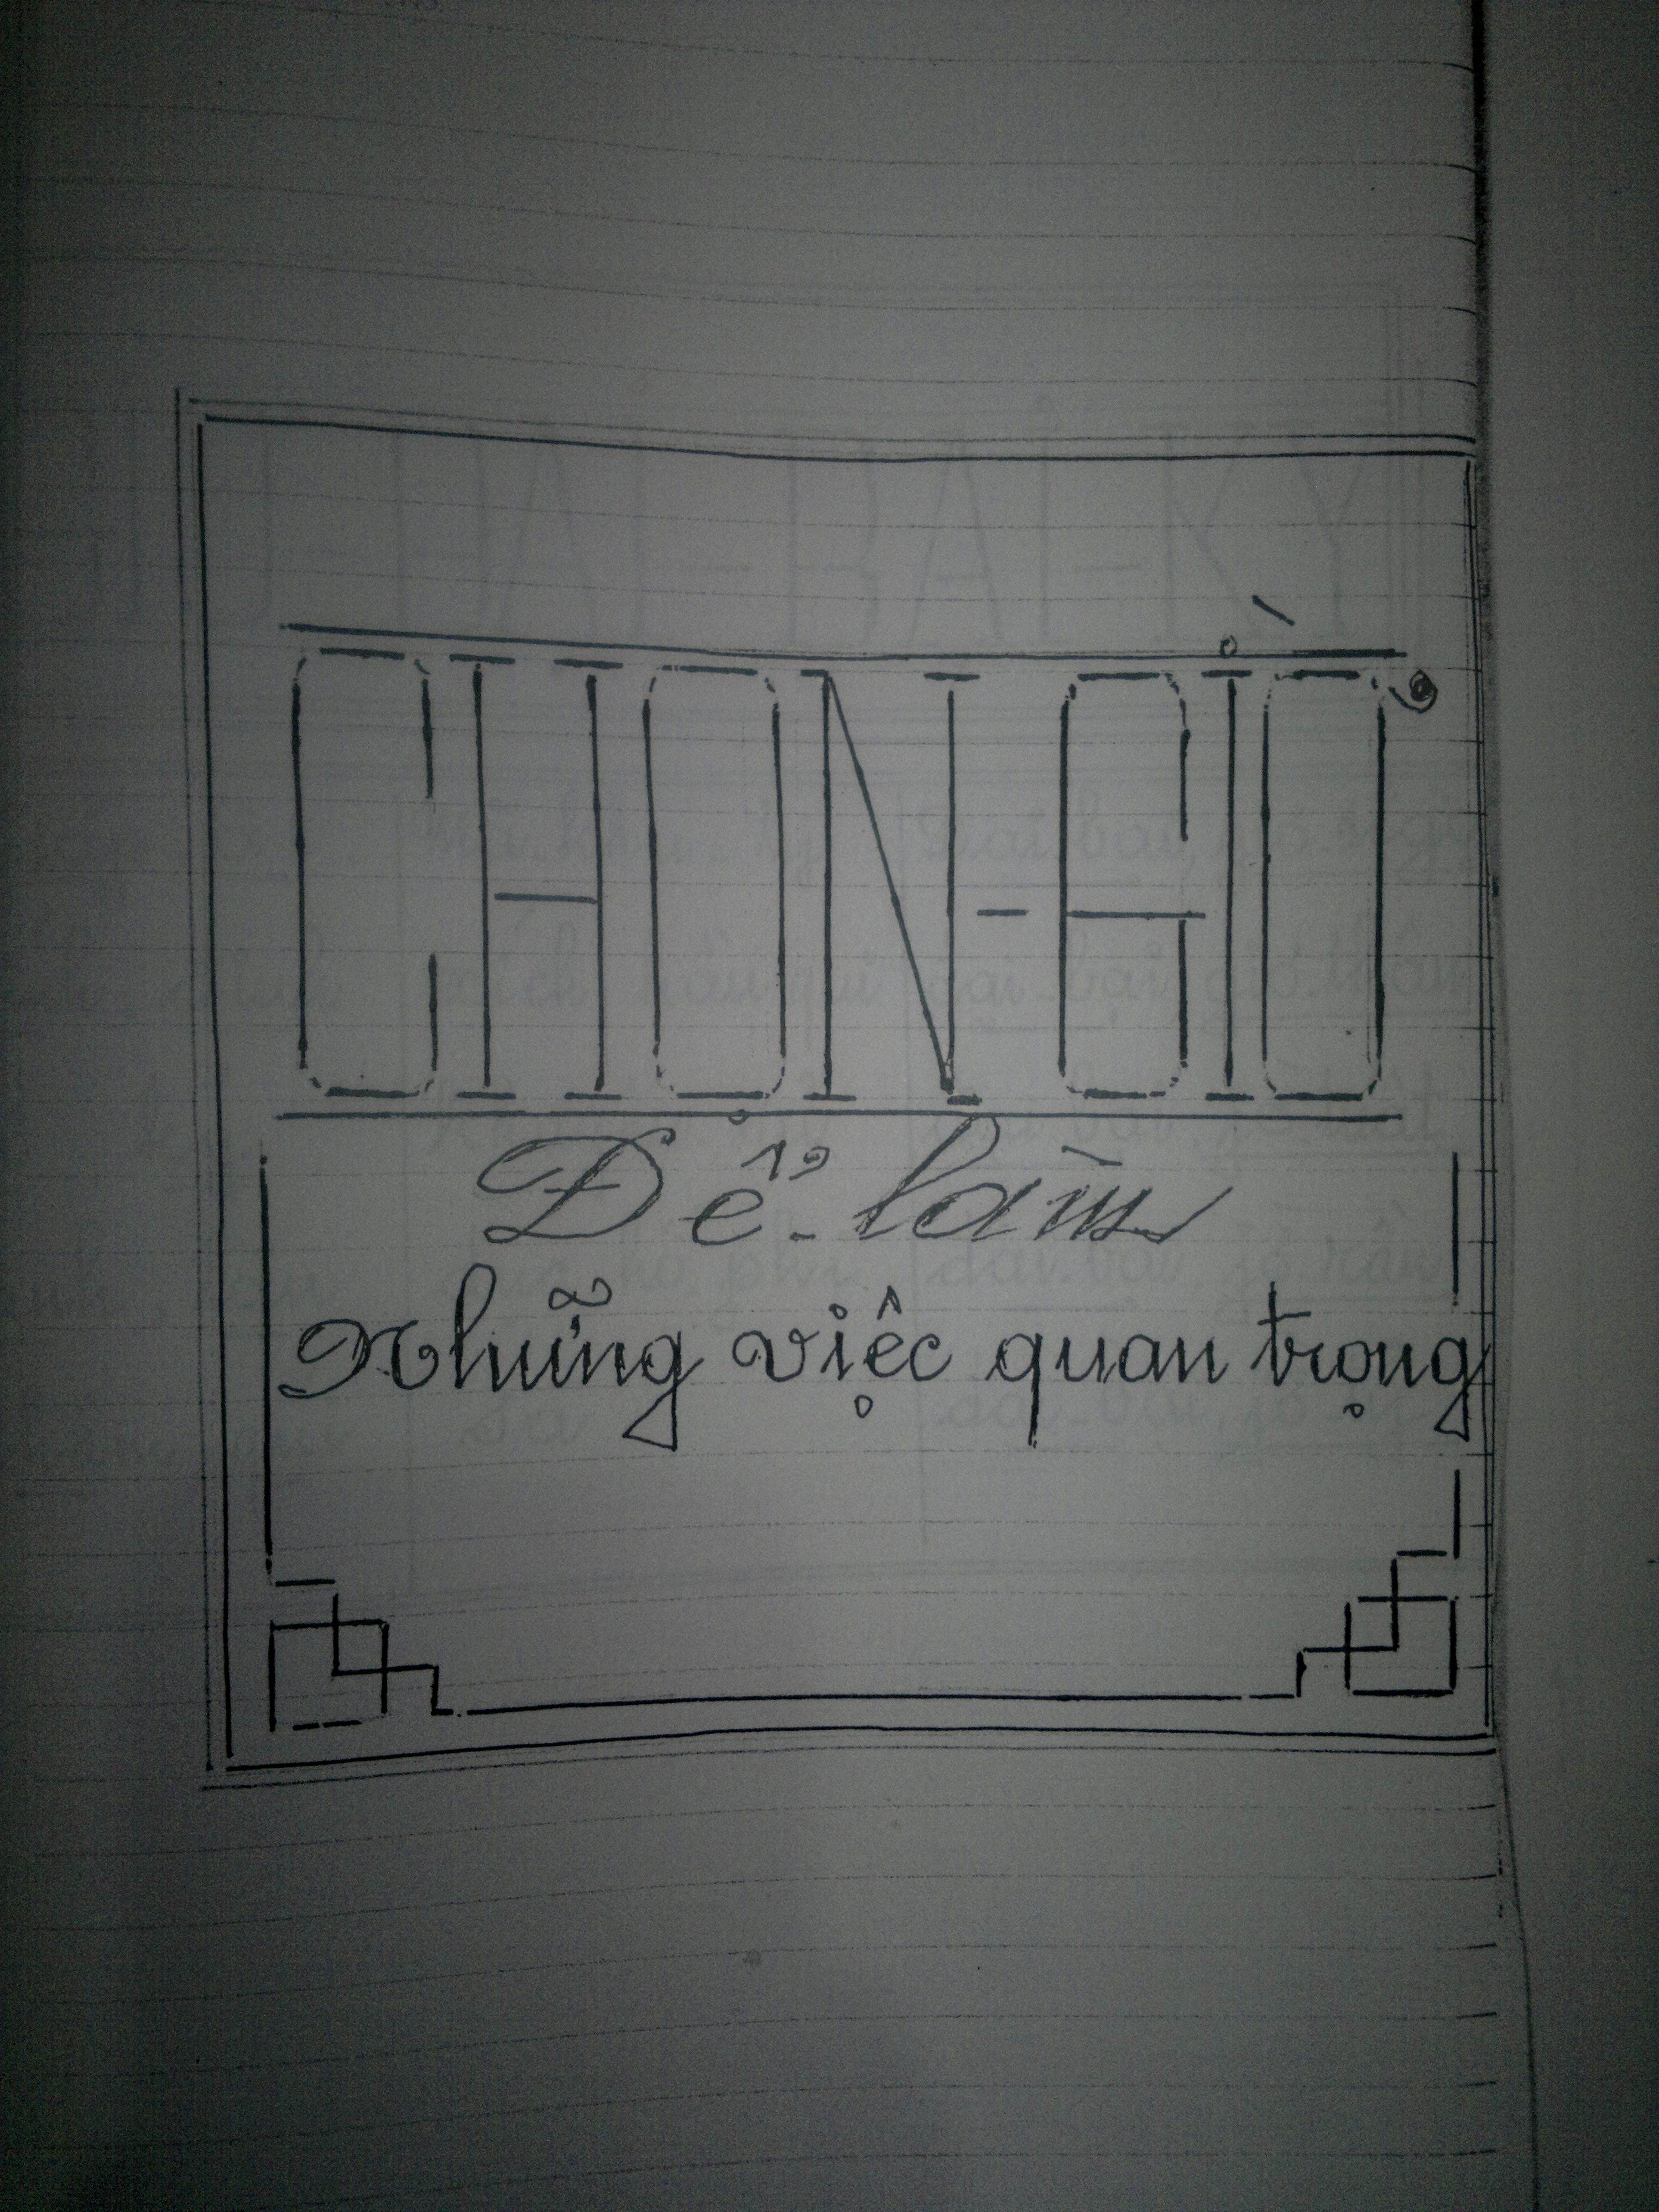 CHỌN-GIỜ
Để-làm
Những việc quan trọng